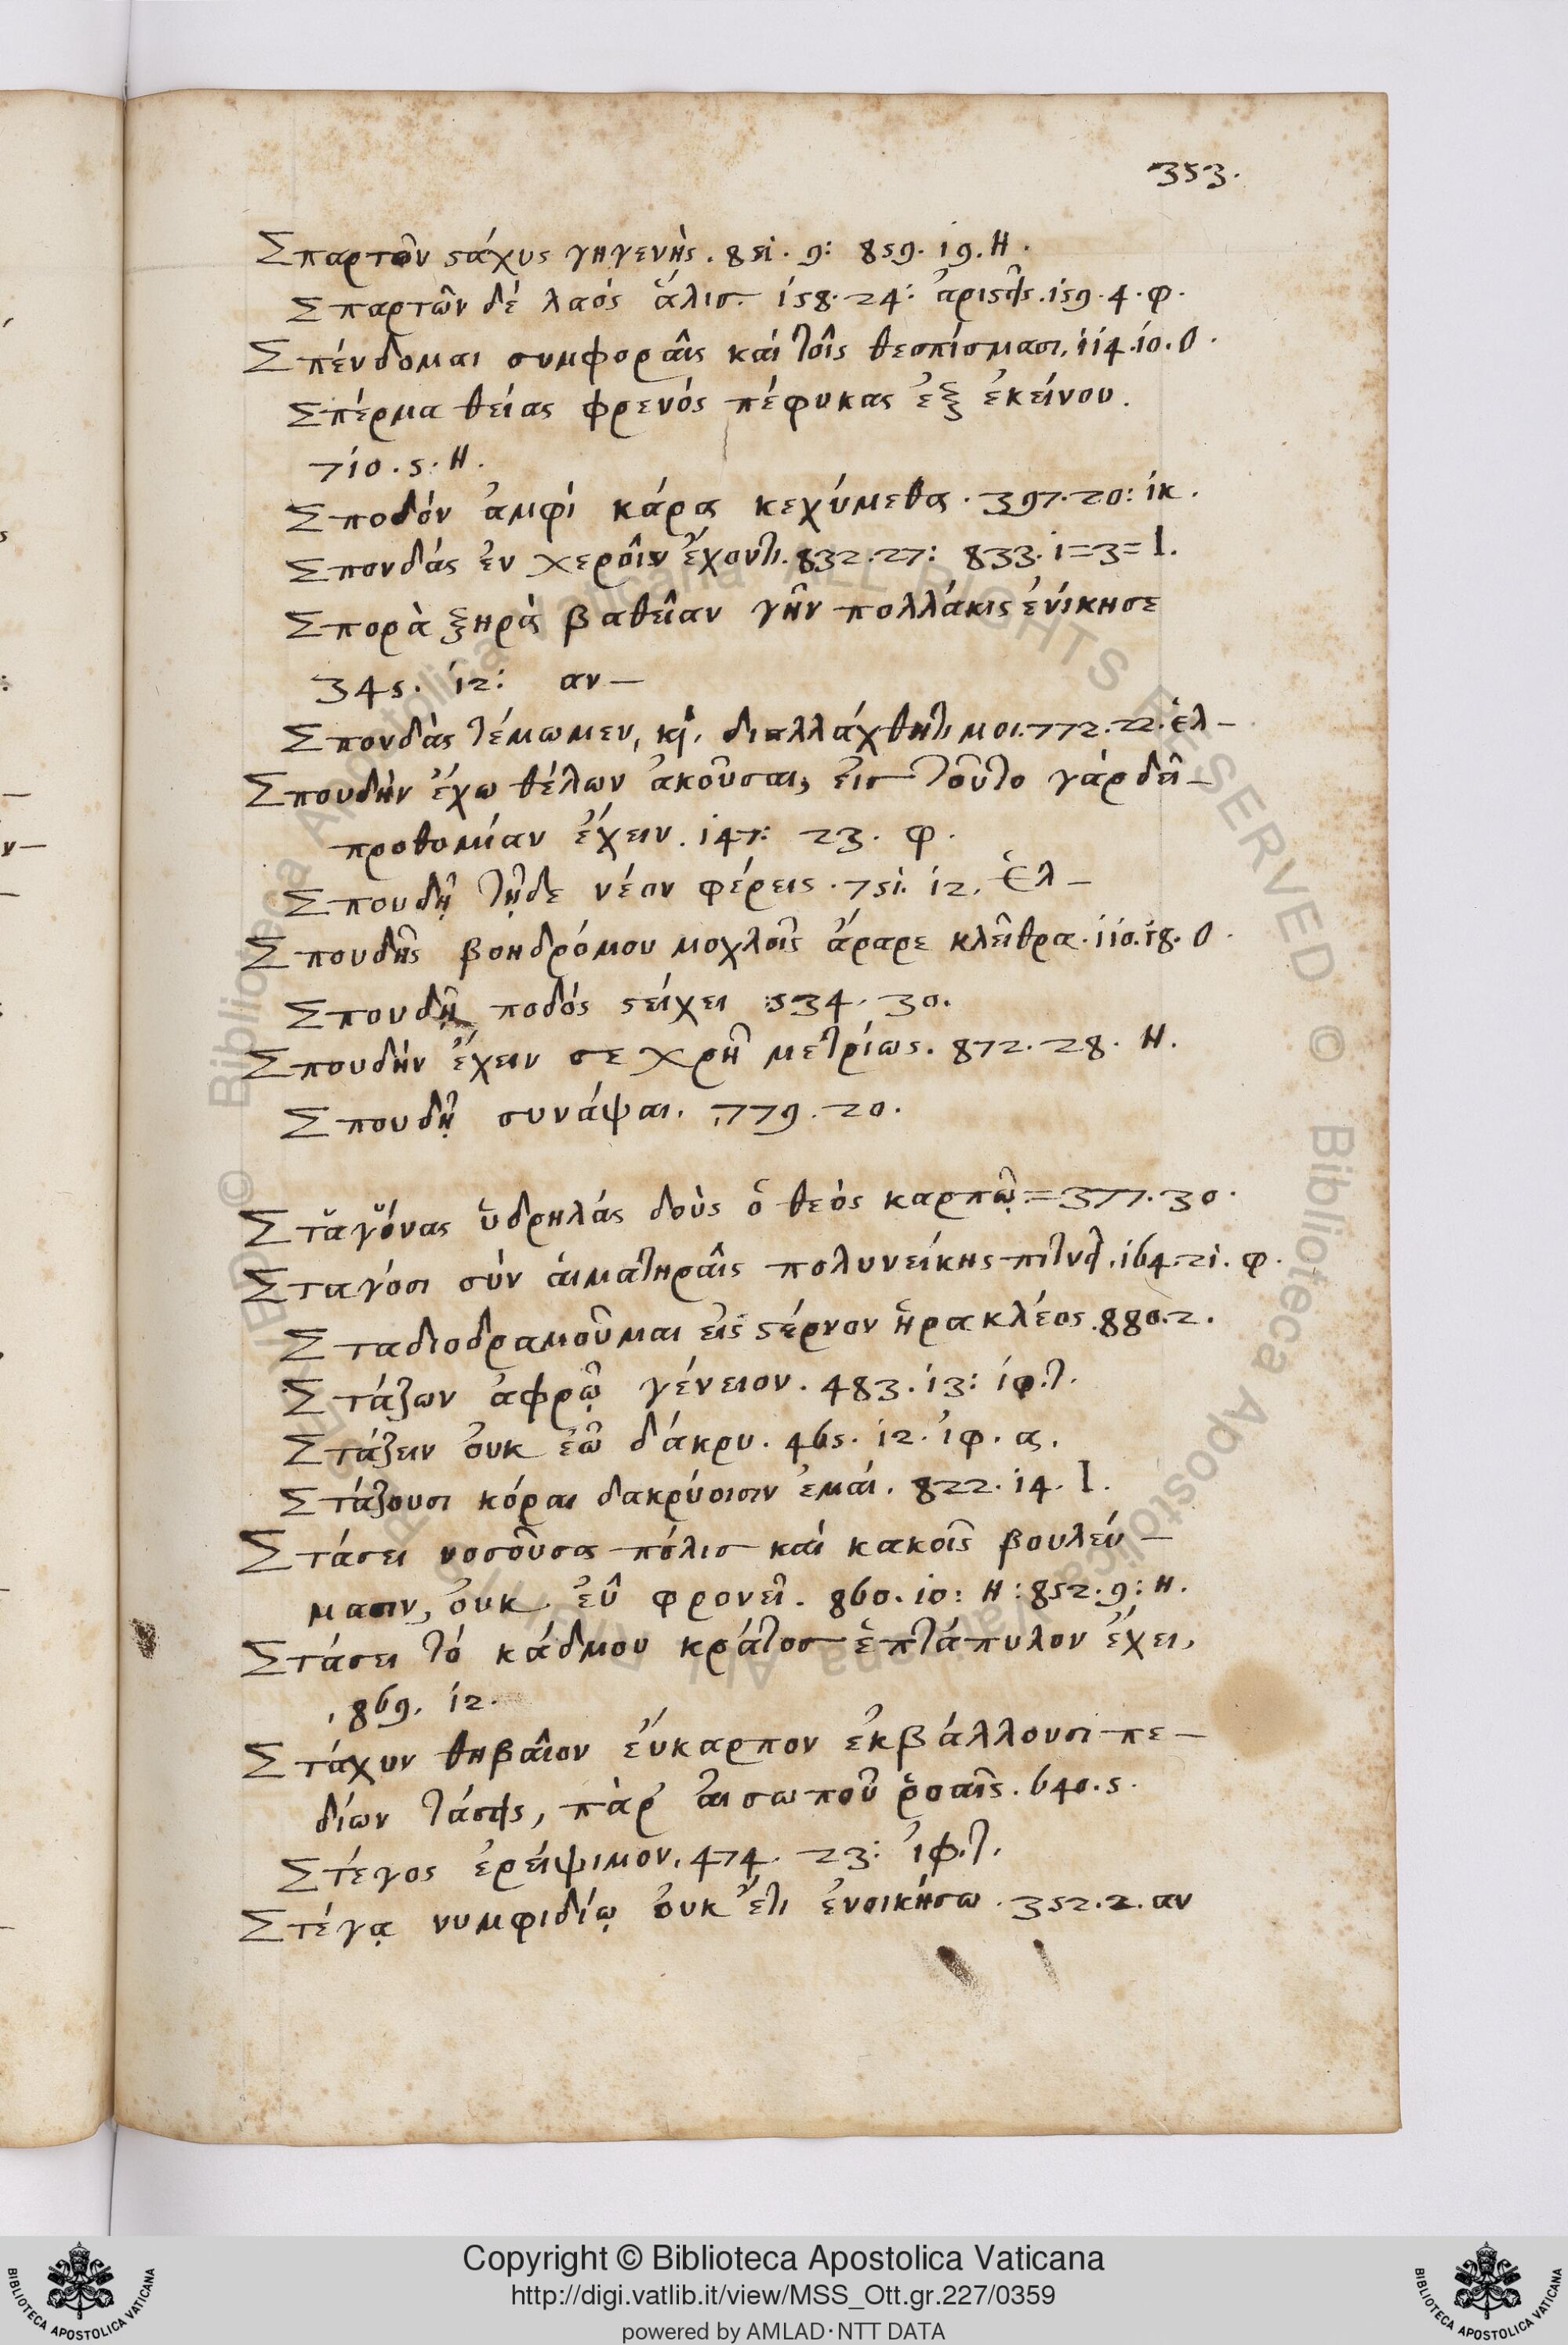 353.
Σπαρτῶν στάχυς γηγενής. 851. 9: 859. 19. Η.
Σπαρτῶν δέ λαός ἅλις. 158. 24: ἄριστος. 159. 4. φ.
Σπένδομαι συμφοραῖς καί τοῖς θεσπίσμασι. 114. 10. Ο.
Σπέρμα θείας φρενός πέφυκας ἐξ ἐκείνου.
710. 5. Η.
Σποδόν ἀμφί κάρα κεχύμεθα. 397. 20: ἱκ.
Σπονδάς ἐν χεροῖν ἔχοντι. 832. 27: 833. 1=3= Ι.
Σπορὰ ξηρὰ βαθεῖαν γῆν πολλάκις ἐνίκησε
345. 12: αν—
Σπονδὰς τέμωμεν, καί διαλλάχθητι μοι. 772. 22. ἑλ—
Σπουδὴν ἔχω θέλων ἀκοῦσαι, εἰς τοῦτο γάρ δεῖ—
προθυμίαν ἔχειν. 147: 23. φ.
Σπουδῇ τῇδε νέον φέρεις. 751. 12. Ἑλ—
Σπουδῆς βοηδρόμου μοχλοῖς ἄραρε κλεῖθρα. 110. 18. Ο.
Σπουδῇ ποδός στείχει 534. 30.
Σπουδήν ἔχειν σε χρή μετρίως. 872. 28. Η.
Σπουδῇ συνάψαι. 779. 20.
Σταγόνας ὑδρηλάς δοὺς ὁ θεός καρπῷ. = 377. 30.
Σταγόσι σύν αἱματηραῖς πολυνείκης πιτνεῖ. 164. 21. φ.
Σταδιοδραμοῦμαι εἰς στέρνον ἡρακλέος. 880. 2.
Στάζων ἀφρῷ γένειον. 483. 13: ἰφ. τ.
Στάζειν οὐκ ἐῶ δάκρυ. 465. 12. ἰφ. α.
Στάζουσι κόραι δακρύοισιν ἐμαί. 822. 14. Ι.
Στάσει νοσοῦσα πόλις καί κακοῖς βουλεύ—
μασιν, οὐκ εὖ φρονεῖ. 860. 10: Η: 852. 9: Η.
Στάσει τό κάδμου κράτος ἑπτάπυλον ἔχει,
869. 12.
Στάχυν θηβαῖον εὔκαρπον ἐκβάλλουσι πε—
δίων πὰρ' αἰσωποῦ ῥοαῖς. 640. 5.
Στέγος ἐρείψιμον. 474. 23: ἰφ. τ.
Στέγᾳ νυμφιδίῳ οὐκ ἔτι ἐνοικήσω. 352. 2. αν
Copyright © Biblioteca Apostolica Vaticana
http://digi.vatlib.it/view/MSS_Ott.gr.227/0359
powered by AMLAD · NTT DATA